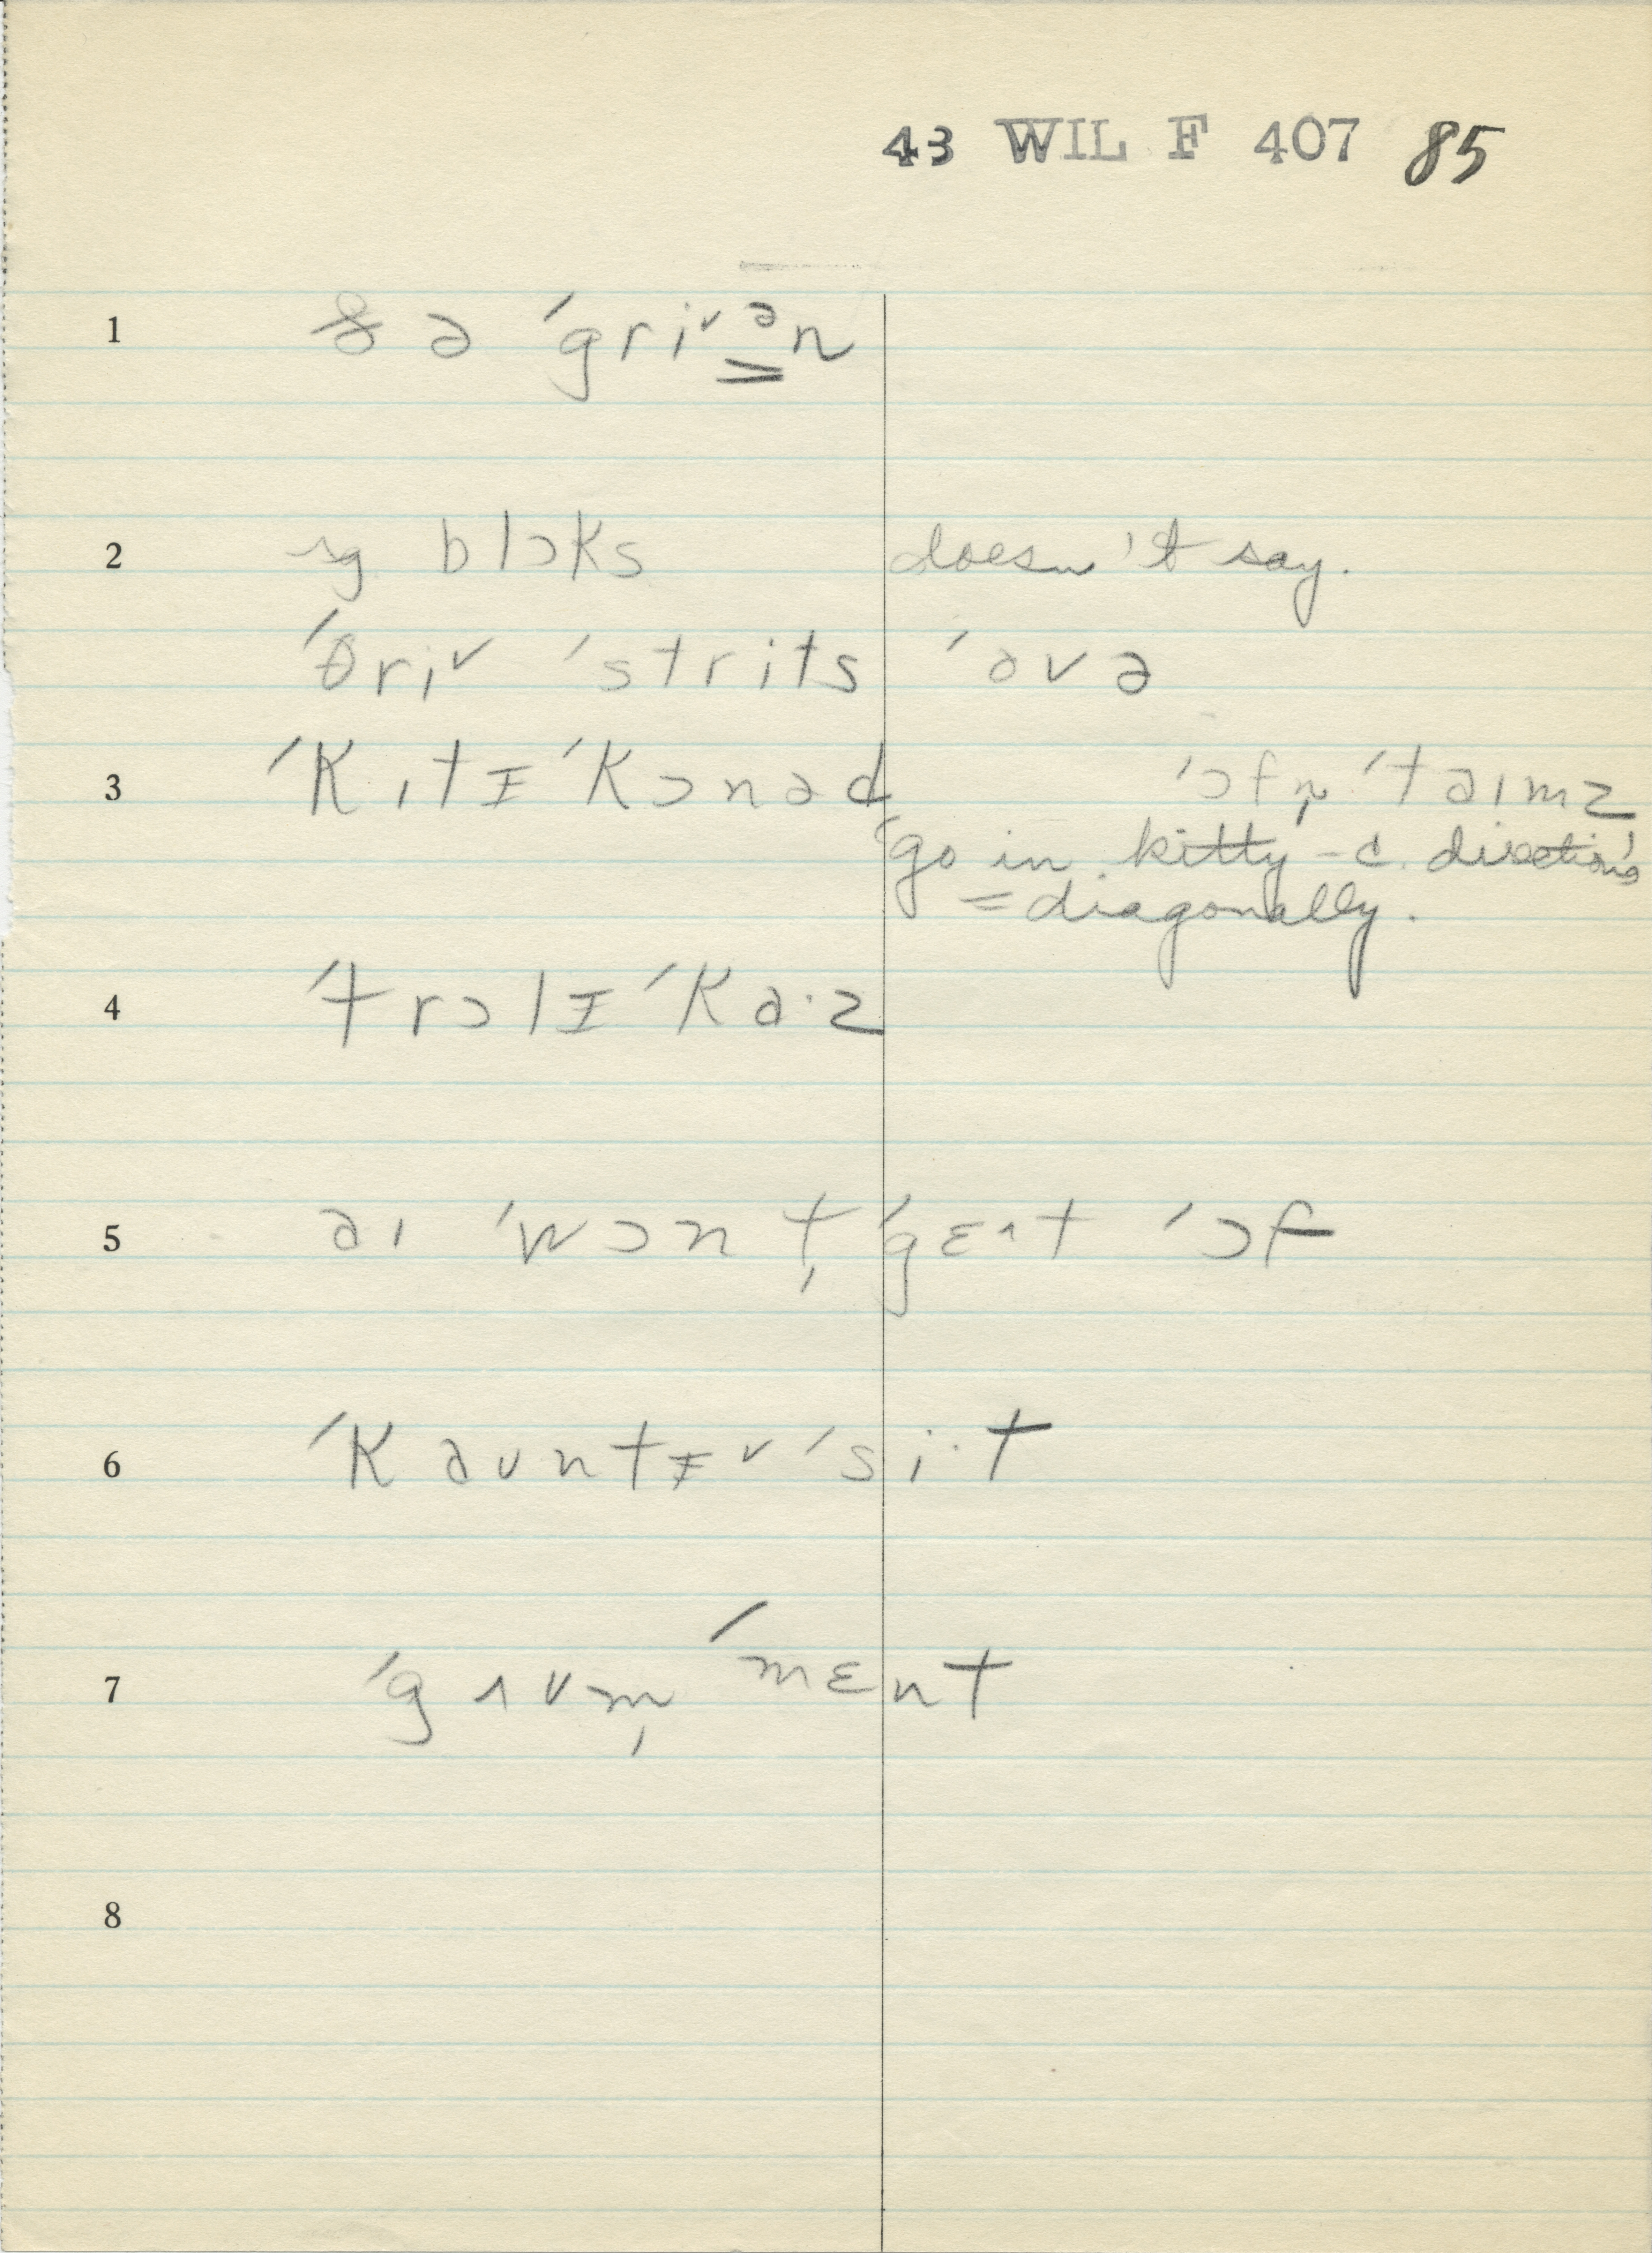 43 WIL F 407 85
1 ðə ˈgriᵛᵊn
2 ɪg blɔks doesn't say.
ˈθriᵛ ˈstrits ˈovə
3 ˈkɪtɪ ˈkɔnəd ˈɔfn̩ ˈtaɪmz
go in kitty-c. direction
= diagonally.
4 ˈtrɔlɪ ˈkɑ·z
5 aɪ ˈwɔn t̩ ˈgɛ^t ˈɔf
6 ˈkauntɪᵛ ˈsi·t
7 ˈgʌvm̩ ˈmɛnt
8